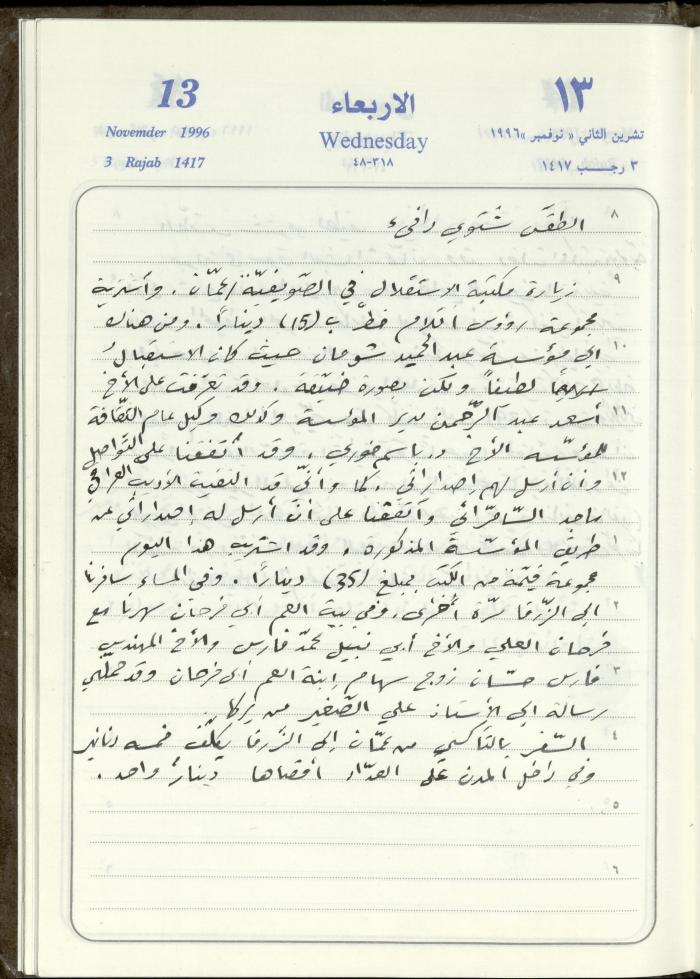 13
الاربعاء
١٣
Novemder 1996
Wednesday
تشرين الثاني « نوفمبر »١٩٩٦
3 Rajab 1417
٤٨-٣١٨
٣ رجــــب ١٤١٧
٨
الطقس شتوي دافىء
٩
زيارة مكتبة الاستقلال في الصّويفيّة/عمّان . وأشترية
مجموعة رؤوس اقلام خطّ ب (15) ديناراً . ومن هناك
١٠
الى مؤسسة عبد الحميد شومان حيث كان الاستقبالُ
لطيفاً ولكن بصورة ضيّقة وقد تعرّفت على الأخ
١١
أسعد عبد الرّحمن مدير المؤسسة وكذلك وكيل عام الثّقافة
للمؤسّسه الأخ د. باسم خوري . وقد أتفقنا على التّواصل
١٢
وأن أرسل لهم إصداراتي . كما وأنّي قد التقيت الأديب العراقي
ماجد السّامرّائي وأتفقنا على أن أرسل له إصداراتي عن
١
طريق المؤسّسة المذكوره . وقد اشتريت هذا اليوم
مجموعة قيّمة من الكتب بمبلغ (35) ديناراً . وفي المساء سافرنا
٢
الى الزّرقا مرّة أخرى . وفي بيت العم ابي فرحان سهرنا مع
فرحان العلي والأخ أبي نبيل محمّد فارس والأخ المهندس
٣
فارس حسّان زوج سهام إبنة العم ابي فرحان وقد حمّلني
رسالة الى الأستاذ علي الصّغير من يركا .
٤
السّفر بالتّاكسي من عمّان إلى الزّرقا يكلّف خمسه دنانير
وفي داخل المدن على العدّاد أقصاها ديناراً واحد .
٥
٦